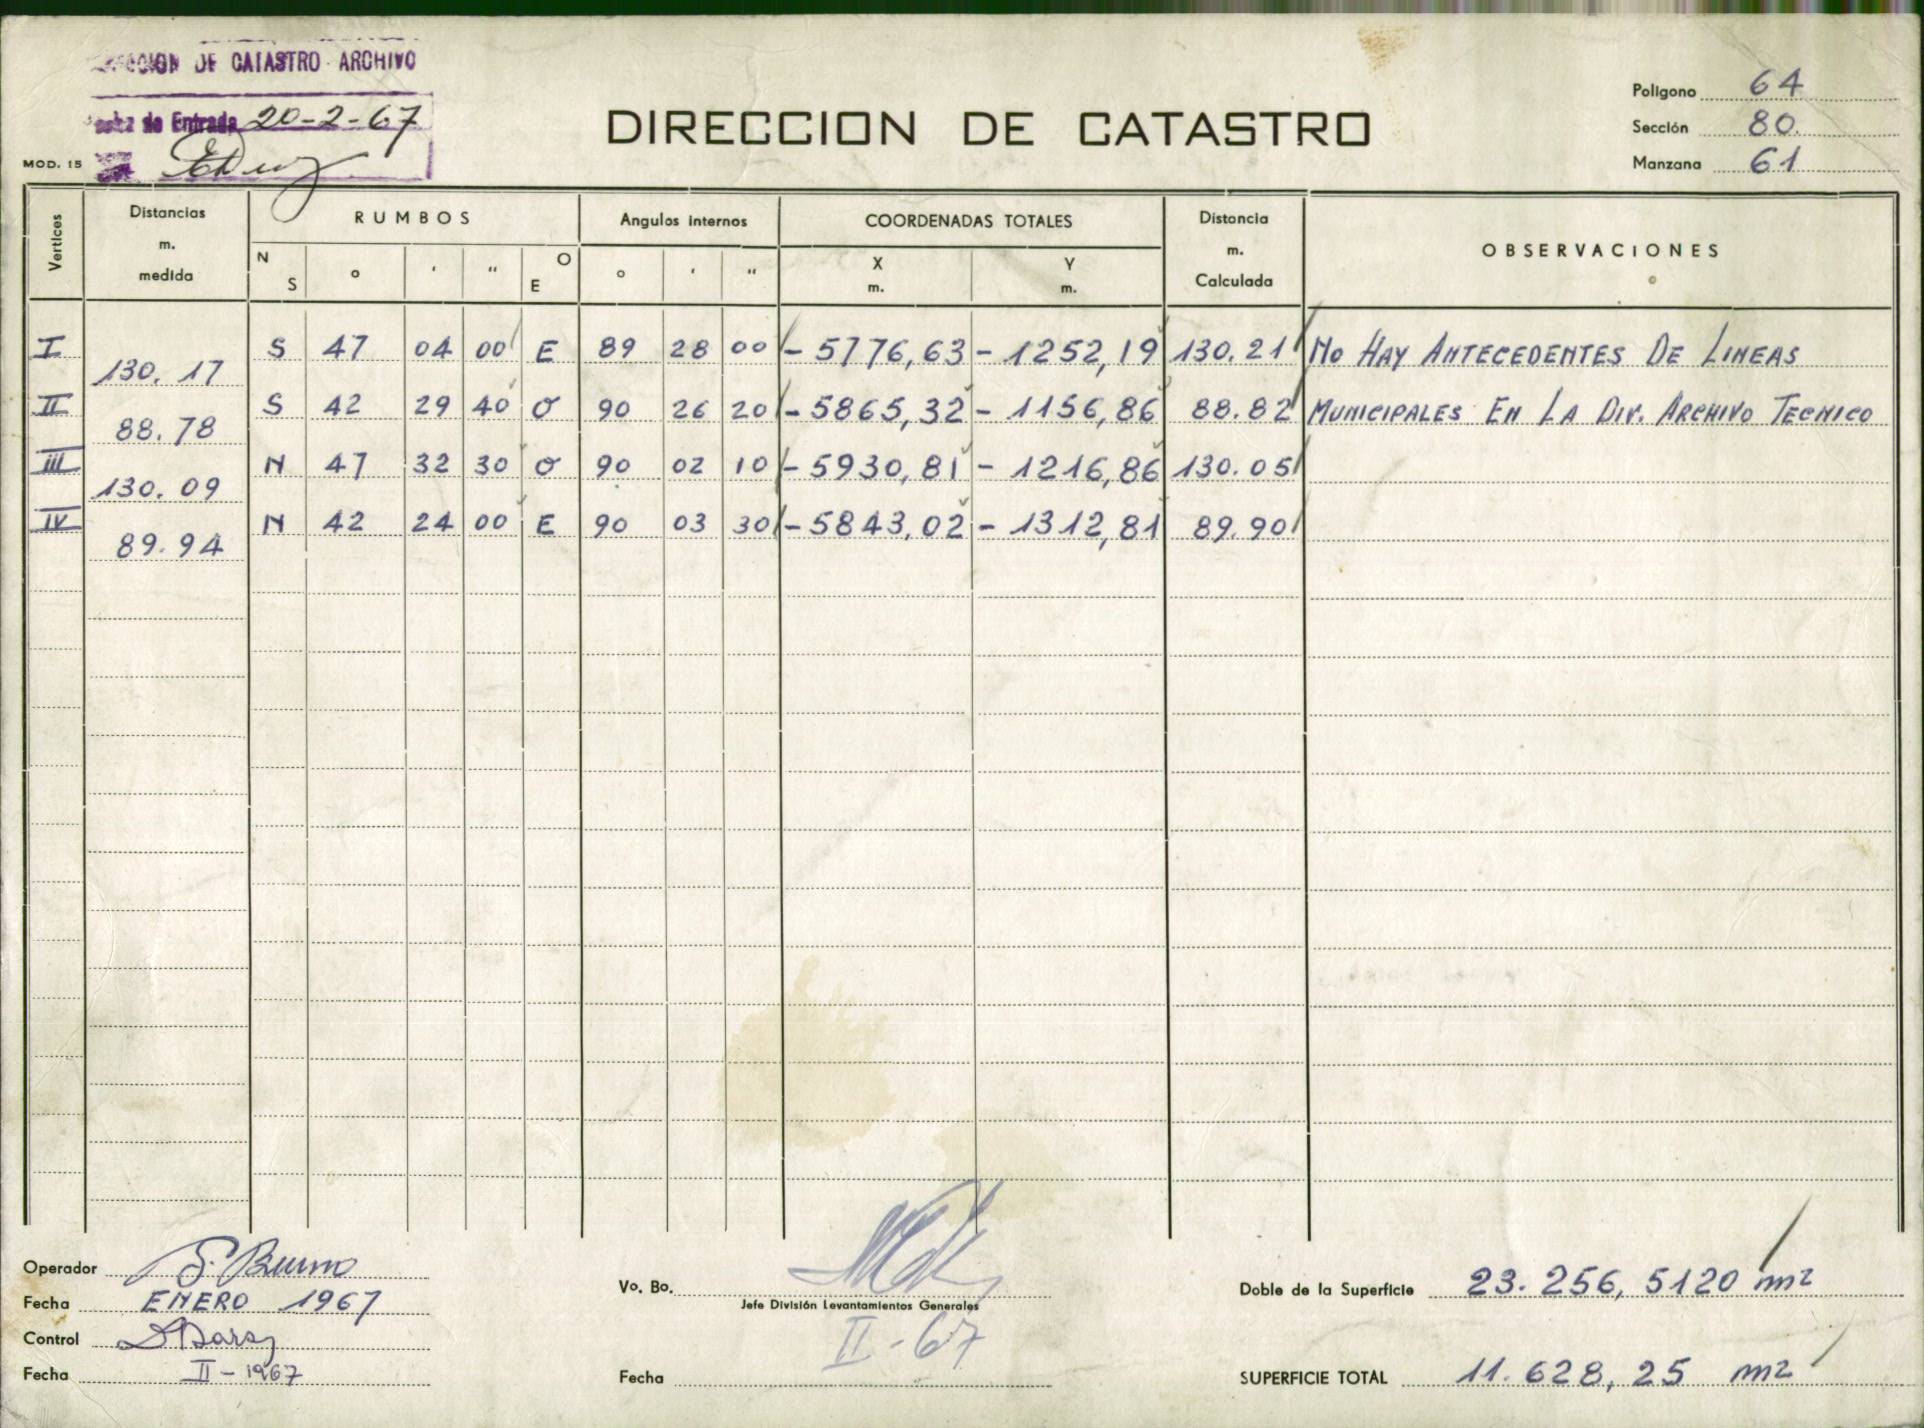 DE CATASTRO - ARCHIVO
de Entrada 20-2-67
MOD. 15
DIRECCION DE CATASTRO
Poligono 64
Sección 80
Manzana 61
Vertices Distancias m. medida RUMBOS Angulos internos COORDENADAS TOTALES Distancia m. Calculada OBSERVACIONES
N S ° ' " O E ° ' " X m. Y m.
I S 47 04 00 E 89 28 00 - 5776,63 - 1252,19 130.21 No HAY ANTECEDENTES DE LINEAS
130.17
II S 42 29 40 O 90 26 20 - 5865,32 - 1156,86 88.82 MUNICIPALES EN LA DIV. ARCHIVO TECNICO
88.78
III N 47 32 30 O 90 02 10 - 5930,81 - 1216,86 130.05
130.09
IV N 42 24 00 E 90 03 30 - 5843,02 - 1312,81 89.90
89.94
Operador
Fecha ENERO 1967
Control
Fecha II - 1967
Vo. Bo.
Jefe División Levantamientos Generales
II - 67
Fecha
Doble de la Superficie 23.256,5120 m2
SUPERFICIE TOTAL 11.628,25 m2